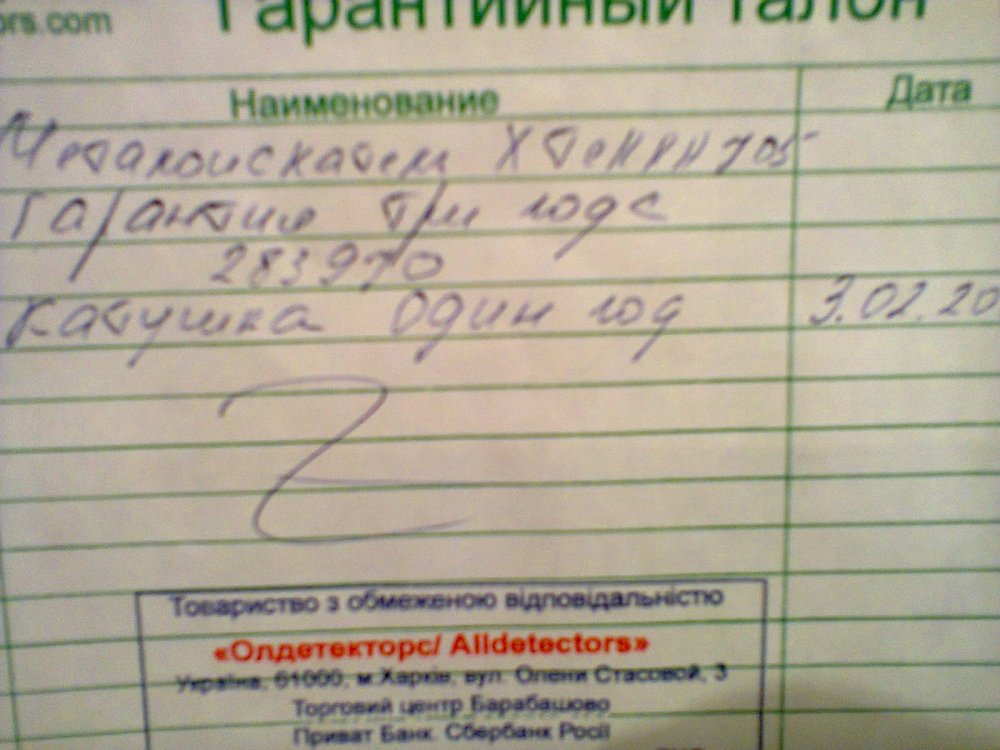 ors.com Гарантийный талон
Наименование Дата
Металоискатель Х Террн 705
Гарантия три года
283970
Катушка один год 3.02.20
Товариство з обмеженою відповідальністю
«Олдетекторс/ Alldetectors»
Україна, 61000, м.Харків, вул. Олени Стасової, 3
Торговий центр Барабашово
Приват Банк. Сбербанк Росії